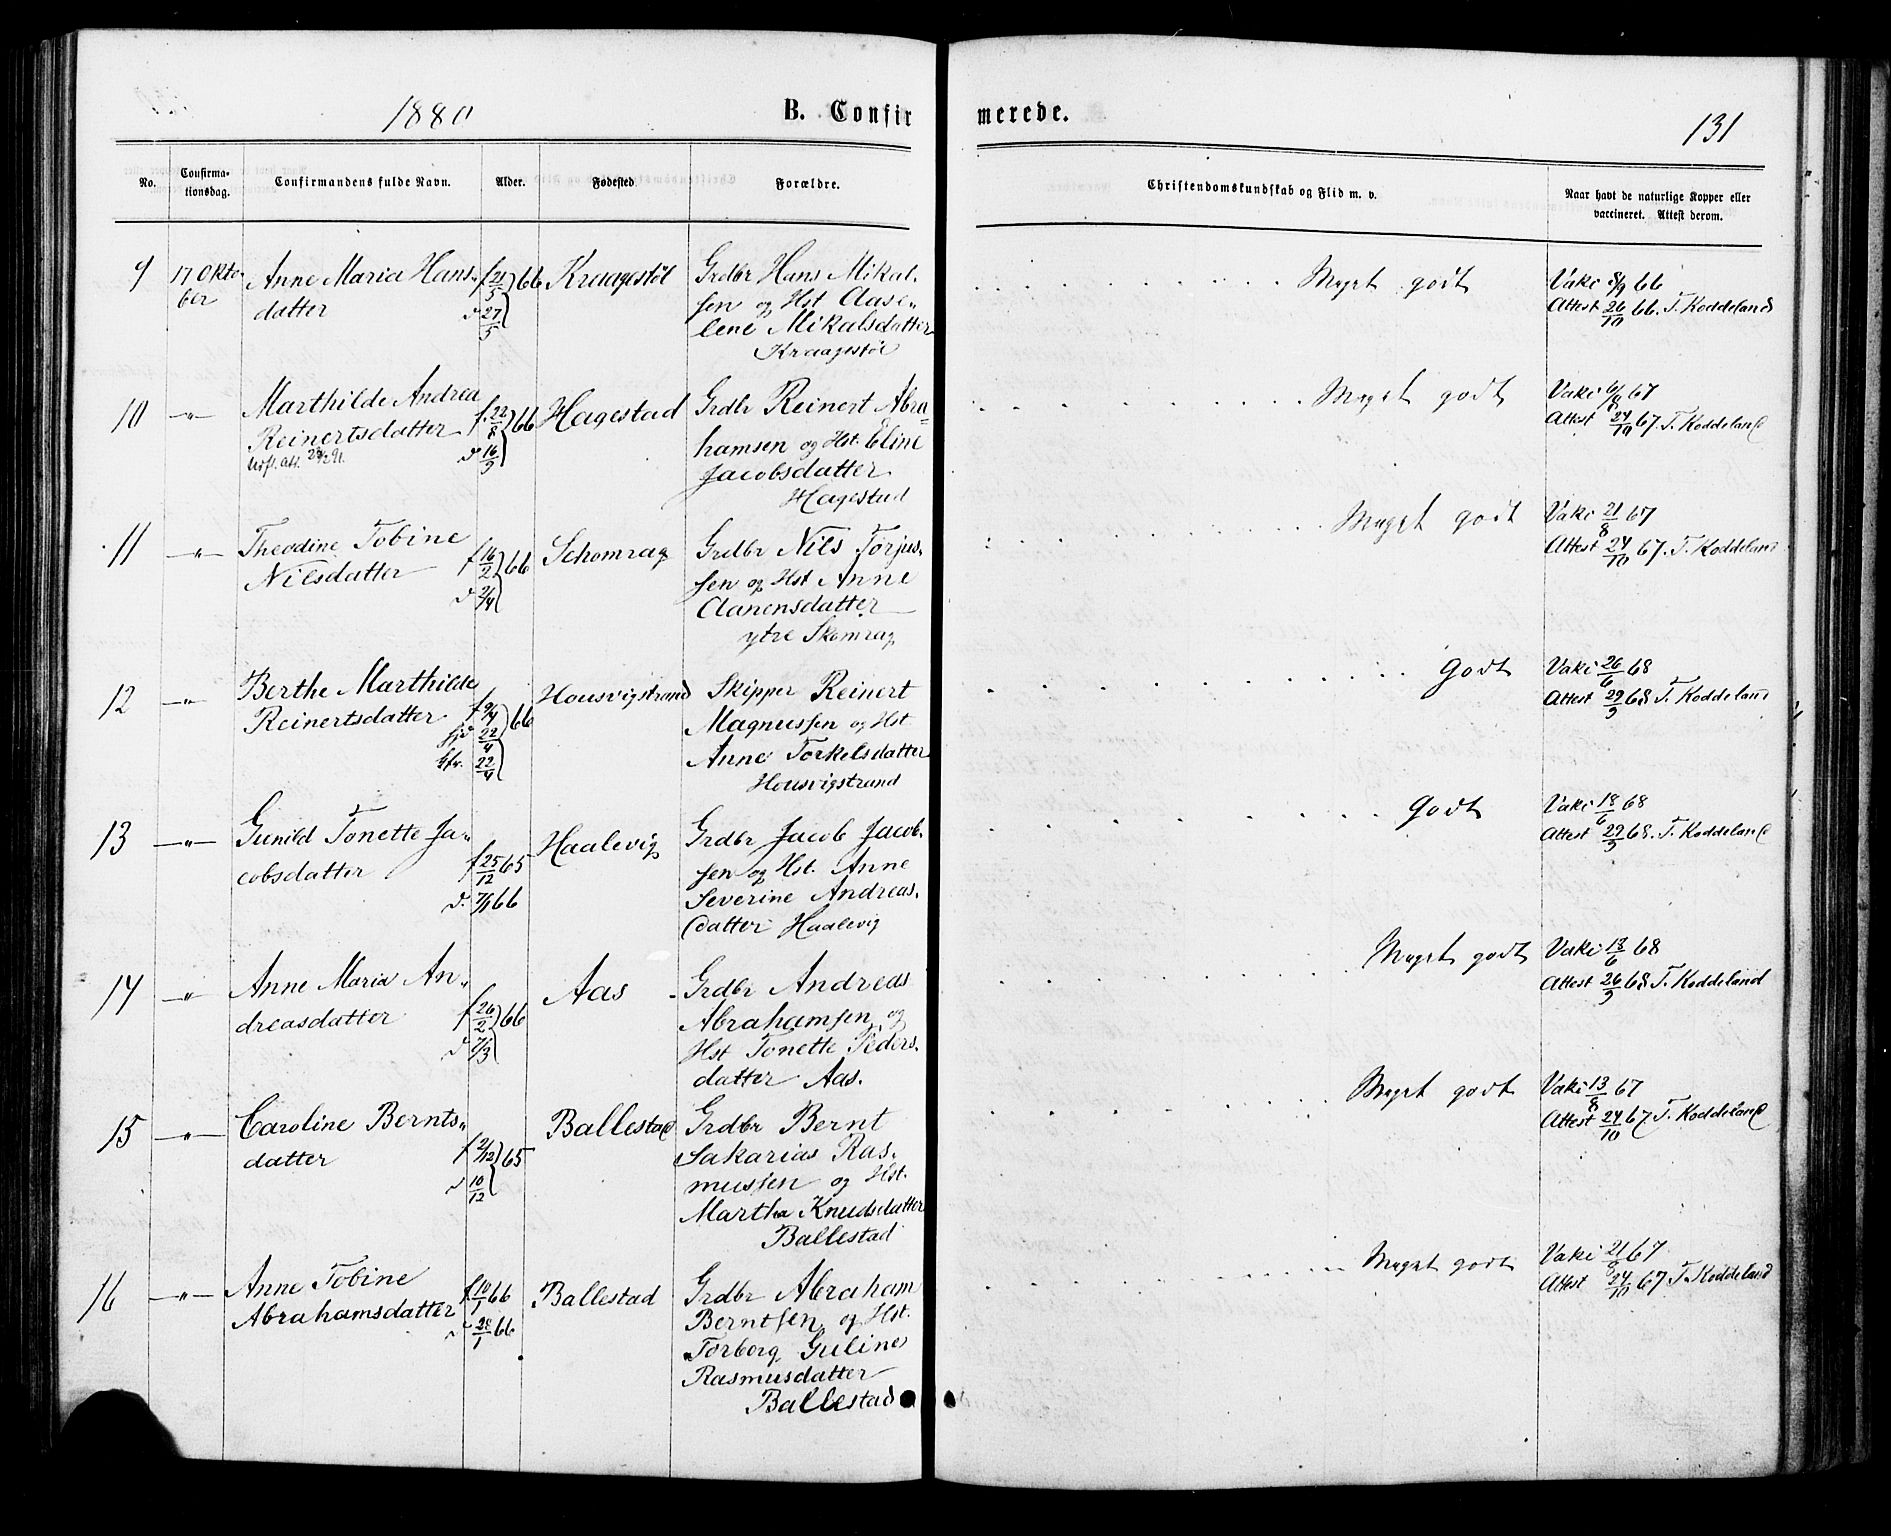 1880 B. Confirmerede. 131
No. Confirmationsdag. Confirmandens fulde Navn. Alder. Fødested Forældre. Christendomskundskab og Flid m. v. Naar havt de naturlige Kopper eller vaccineret. Attest derom.
9 17 Okto- Anne Maria Hans- f 21/5 66 Kraagestøl Grdbr Hans Mikal- Meget godt Vaki 8/9 66
ber datter d 27/5 sen og Hst Aase- Attest 26/10 66. T. Koddeland
lene Mikalsdatter
Kraagestøl
10 -"- Marthilde Andrea f. 22/8 66 Hagestad Grdbr Reinert Abra- Meget godt Vaki 6/8 67
Reinertsdatter d 16/9 hamsen og Hst. Eline Attest 24/10 67. T. Koddeland
Jacobsdatter
Hagestad
11 -"- Theodine Tobine f 16/2 66 Schomrag Grdbr Nils Torjus- Meget godt Vaki 21/8 67
Nilsdatter d 2/4 sen og Hst Anne Attest 24/10 67. T. Koddeland
Aanensdatter
ytre Skomrag
12 -"- Berthe Marthilde f 9/4 66 Housvigstrand Skipper Reinert Godt Vaki 26/6 68
Reinertsdatter hjd 22/4 Magnussen og Hst Attest 29/9 68 T. Koddeland
kfr. 22/4 Anne Torkelsdatter
Housvigstrand
13 -"- Gunild Tonette Ja- f 25/12 65 Haalevig Grdbr Jacob Jacob- Godt Vaki 18/6 68
cobsdatter d. 7/1 66 sen og Hst. Anne Attest 29/9 68. T. Koddeland
Severine Andreas-
datter Haalevig
14 -"- Anne Maria An- f 26/2 66 Aas Grdbr Andreas Meget godt Vaki 13/6 68
dreasdatter d 7/3 Abrahamsen og Attest 26/9 68 T. Koddeland
Hst Tonette Peders-
datter Aas.
15 -"- Caroline Bernts- f 2/12 65 Ballestad Grdbr Bernt Meget godt Vaki 13/8 67
datter d 10/12 Sakarias Ras- Attest 24/10 67. T. Koddeland
mussen og Hst.
Martha Knudsdatter
Ballestad
16 -"- Anne Tobine f 10/1 66 Ballestad Grdbr Abraham Meget godt Vaki 21/8 67
Abrahamsdatter d 28/1 66 Berntsen og Hst. Attest 24/10 67 T. Koddeland
Torborg Guline
Rasmusdatter
Ballestad